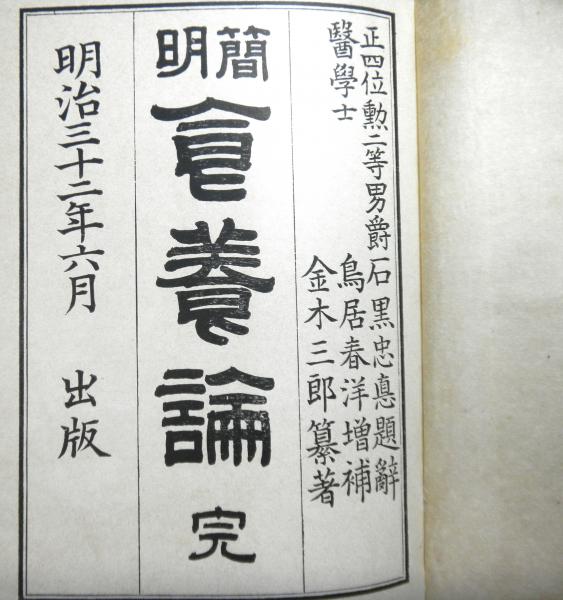 正四位勲二等男爵石黒忠悳題辭
醫學士 鳥居春洋增補
金木三郎纂著
簡明
食養論 完
明治三十二年六月 出版